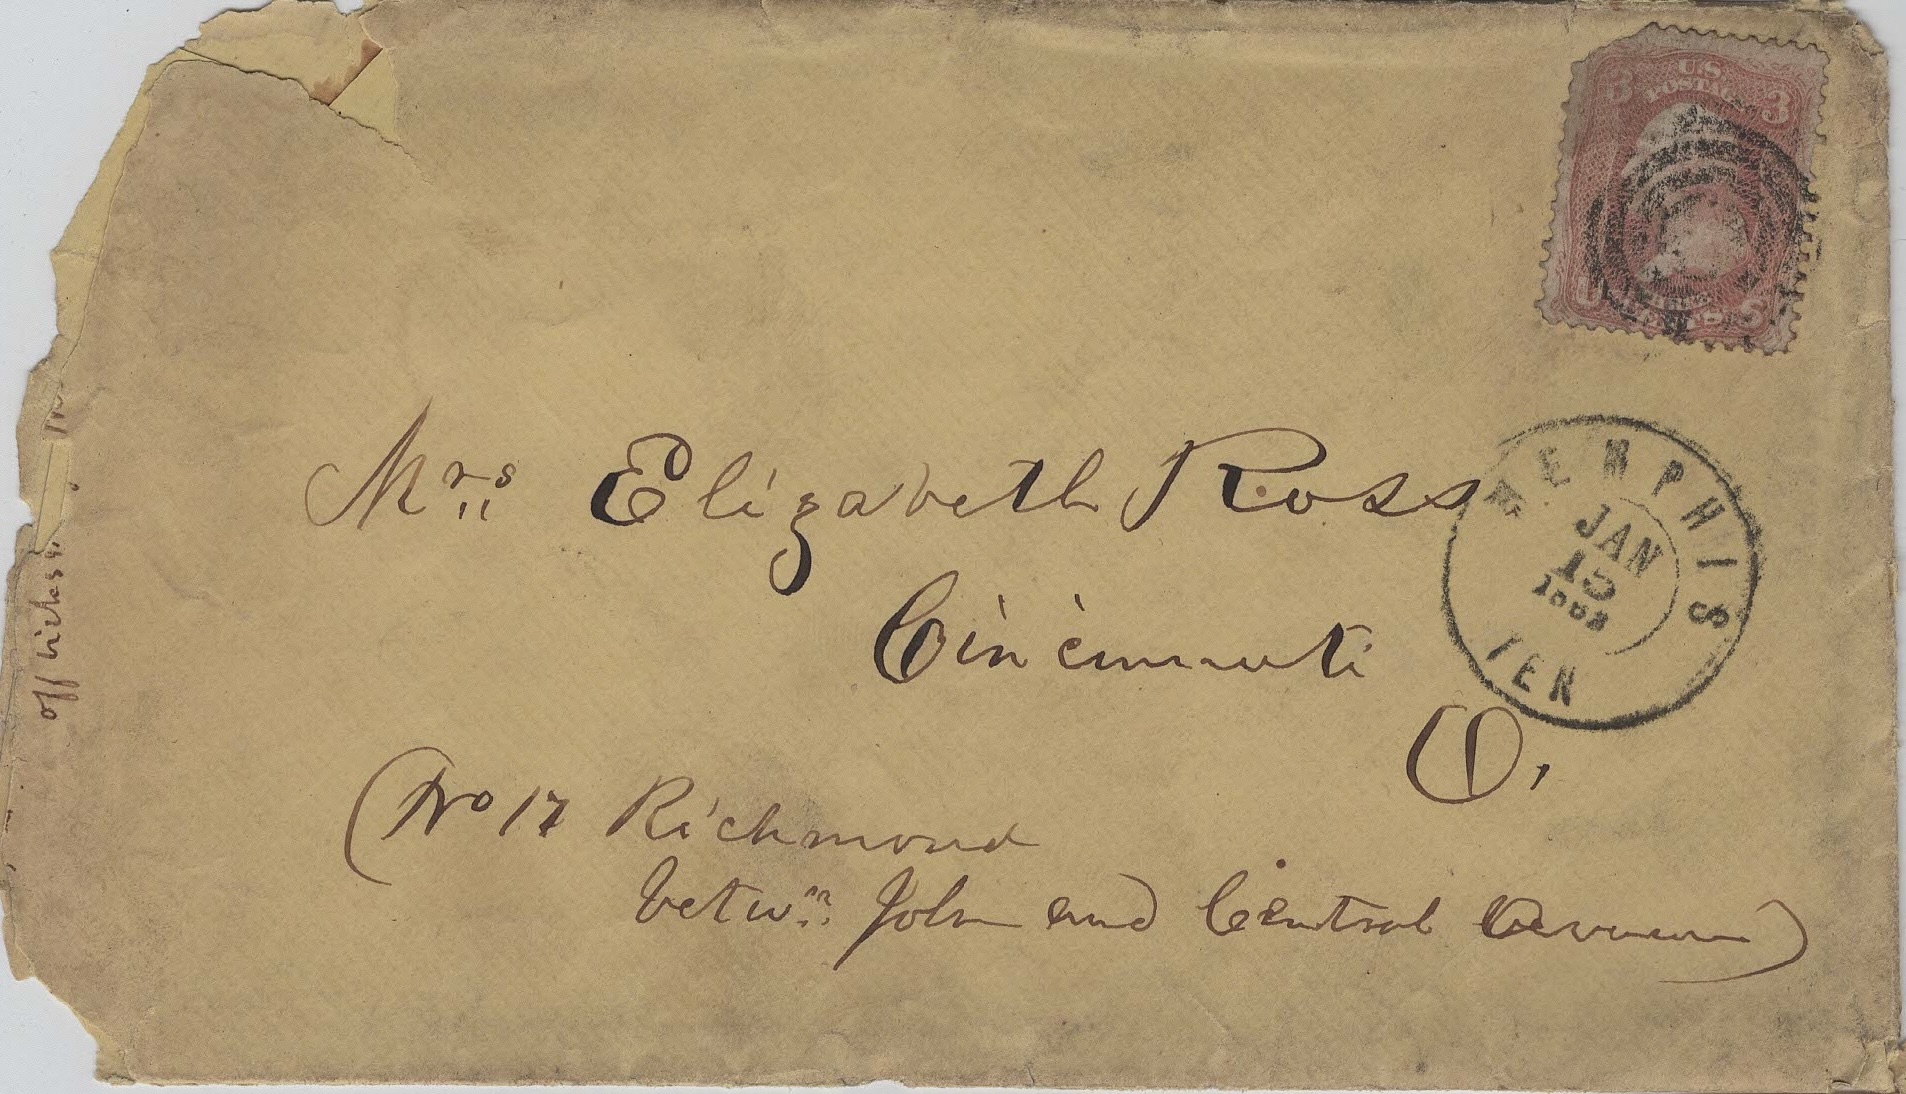 U.S.
POSTAGE
3 3
U S
Mrs Elizabeth Ross
Cincinnati
O.
MEMPHIS
JAN
15
TEN
(No 17 Richmond
betwn John and Central Avenue)
off Vicksburg